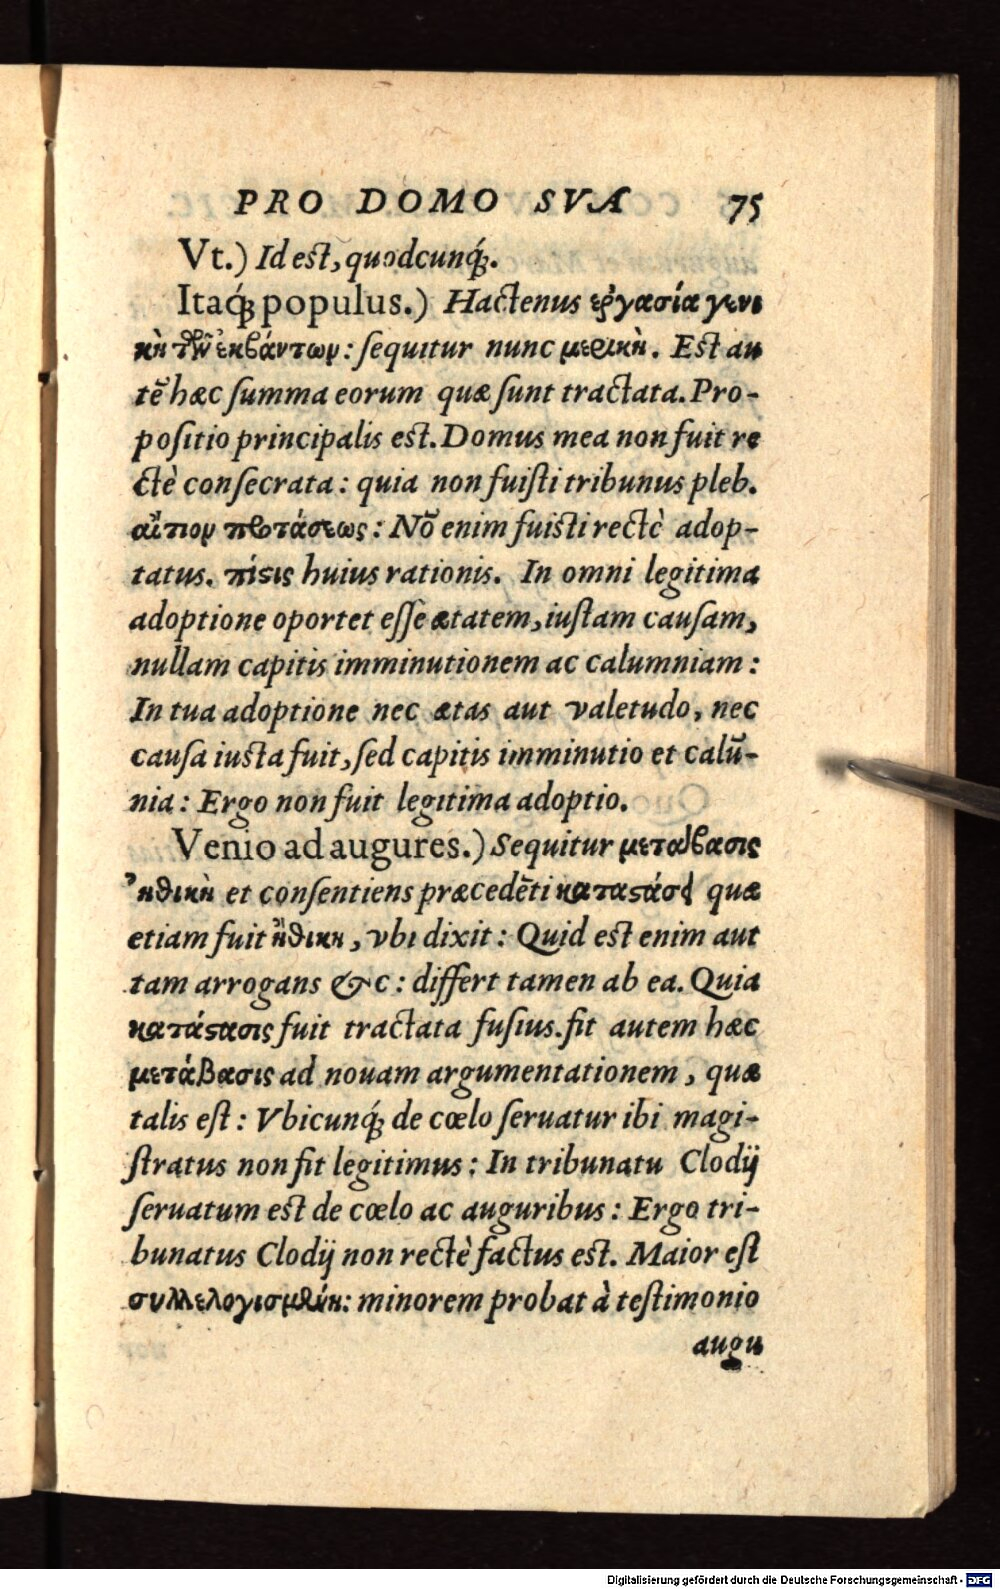 PRO DOMO SVA 75
Vt.) Id est, quodcunq́;.
Itaq́; populus.) Hactenus ἐργασία γενι
κὴ τῶν ἐκβάντων: sequitur nunc μερικὴ. Est au
tē hæc summa eorum quæ sunt tractata. Pro-
positio principalis est. Domus mea non fuit re
ctè consecrata: quia non fuisti tribunus pleb.
αἴτιον προτάσεως: Nō enim fuisti rectè adop-
tatus. πίστις huius rationis. In omni legitima
adoptione oportet esse ætatem, iustam causam,
nullam capitis imminutionem ac calumniam:
In tua adoptione nec ætas aut valetudo, nec
causa iusta fuit, sed capitis imminutio et calū-
nia: Ergo non fuit legitima adoptio.
Venio ad augures.) Sequitur μετάβασις
ἠθικὴ et consentiens præcedēti καταστάσει quæ
etiam fuit ἤθικη, vbi dixit: Quid est enim aut
tam arrogans &c: differt tamen ab ea. Quia
κατάστασις fuit tractata fusius. fit autem hæc
μετάβασις ad nouam argumentationem, quæ
talis est: Vbicunq́; de cœlo seruatur ibi magi-
stratus non fit legitimus: In tribunatu Clodij
seruatum est de cœlo ac auguribus: Ergo tri-
bunatus Clodij non rectè factus est. Maior est
minorem probat à testimonio
augu
Digitalisierung gefördert durch die Deutsche Forschungsgemeinschaft - DFG